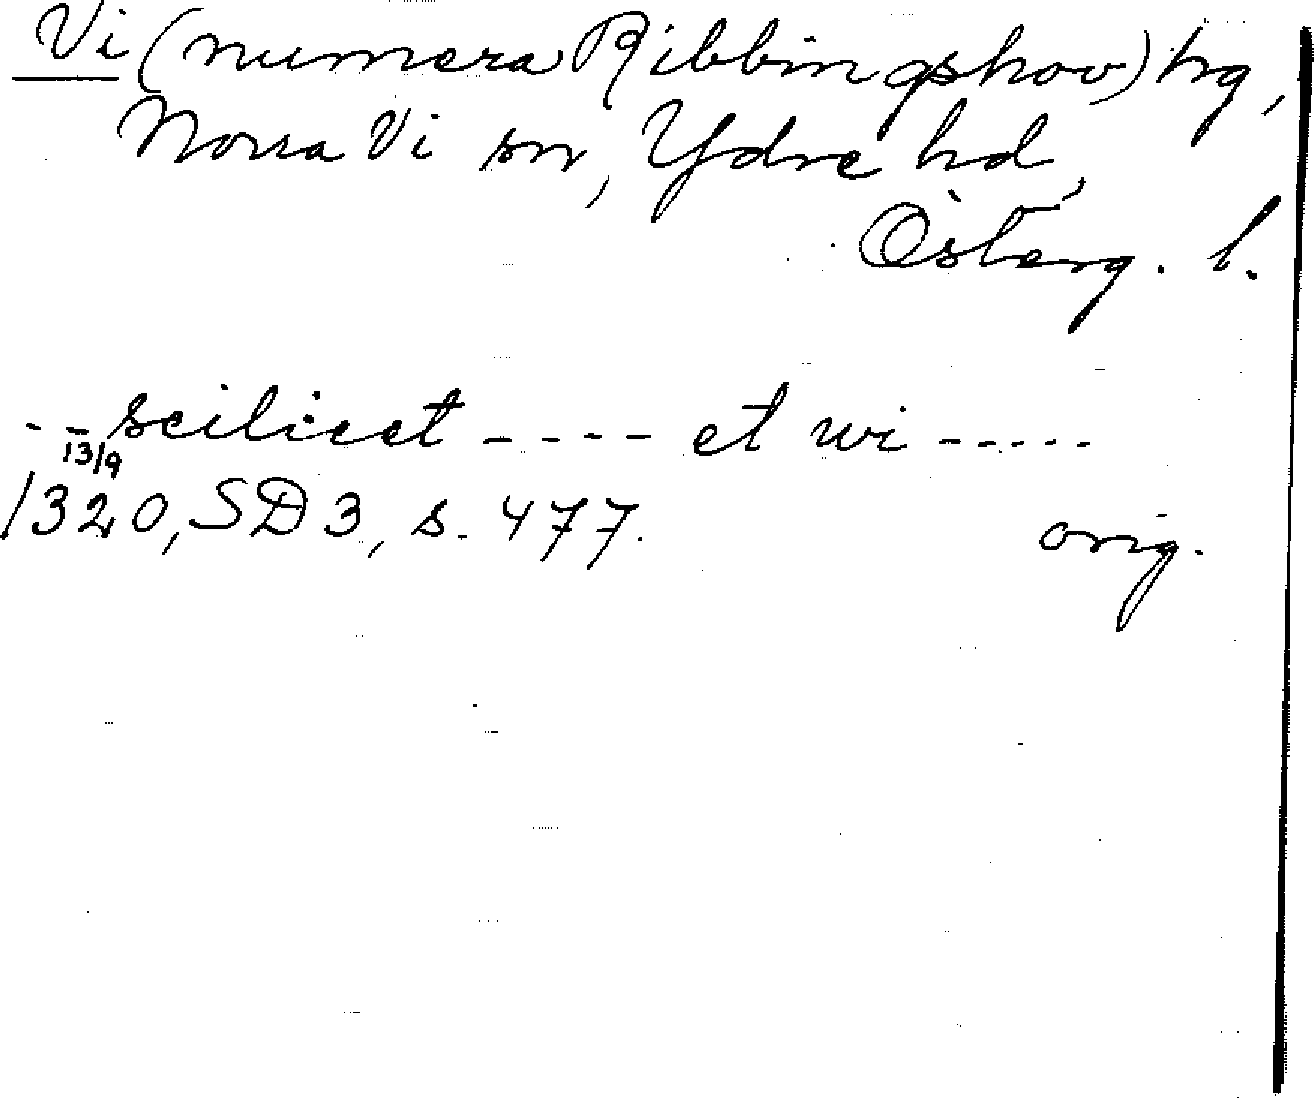 Vi (numera Ribbingshov) hg,
Norra Vi sn, Ydre hd,
Österg. l.
-- scilicet ---- et wi -----
13/9
1320, SD 3, s. 477. orig.